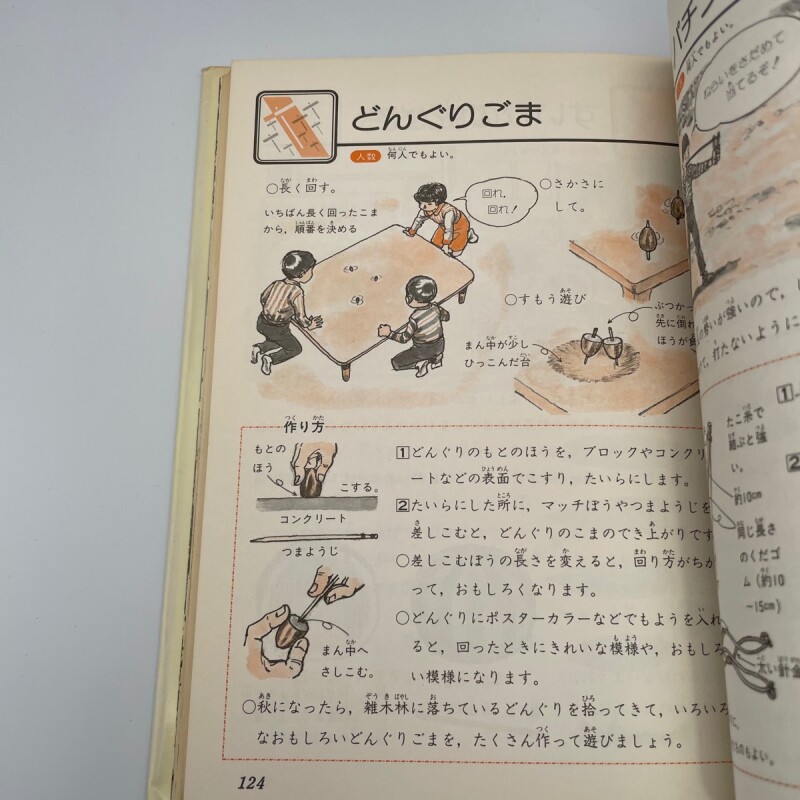 どんぐりごま
人数 何人でもよい。
○長く回す。
いちばん長く回ったこま
から，順番を決める
回れ，
回れ！
○さかさに
して。
○すもう遊び
ぶつかっ
先に倒れ
ほうが
まん中が少し
ひっこんだ台
作り方
もとの
ほう
こする。
コンクリート
つまようじ
まん中へ
さしこむ。
1 どんぐりのもとのほうを，ブロックやコンクリ
ートなどの表面でこすり，たいらにします。
2 たいらにした所に，マッチぼうやつまようじを
差しこむと，どんぐりのこまのでき上がりです
○差しこむぼうの長さを変えると，回り方がちが
って，おもしろくなります。
○どんぐりにポスターカラーなどでもようを入れ
ると，回ったときにきれいな模様や，おもしろ
い模様になります。
○秋になったら，雑木林に落ちているどんぐりを拾ってきて，いろいろ
なおもしろいどんぐりごまを，たくさん作って遊びましょう。
124
パチン
何人でもよい。
ねらいをさだめて
当てるぞ！
いが強いので，
，打たないように
1
たこ糸で
結ぶと強
い。
2
約10cm
同じ長さ
のくだゴ
ム（約10
～15cm）
太い針金
のもよい。